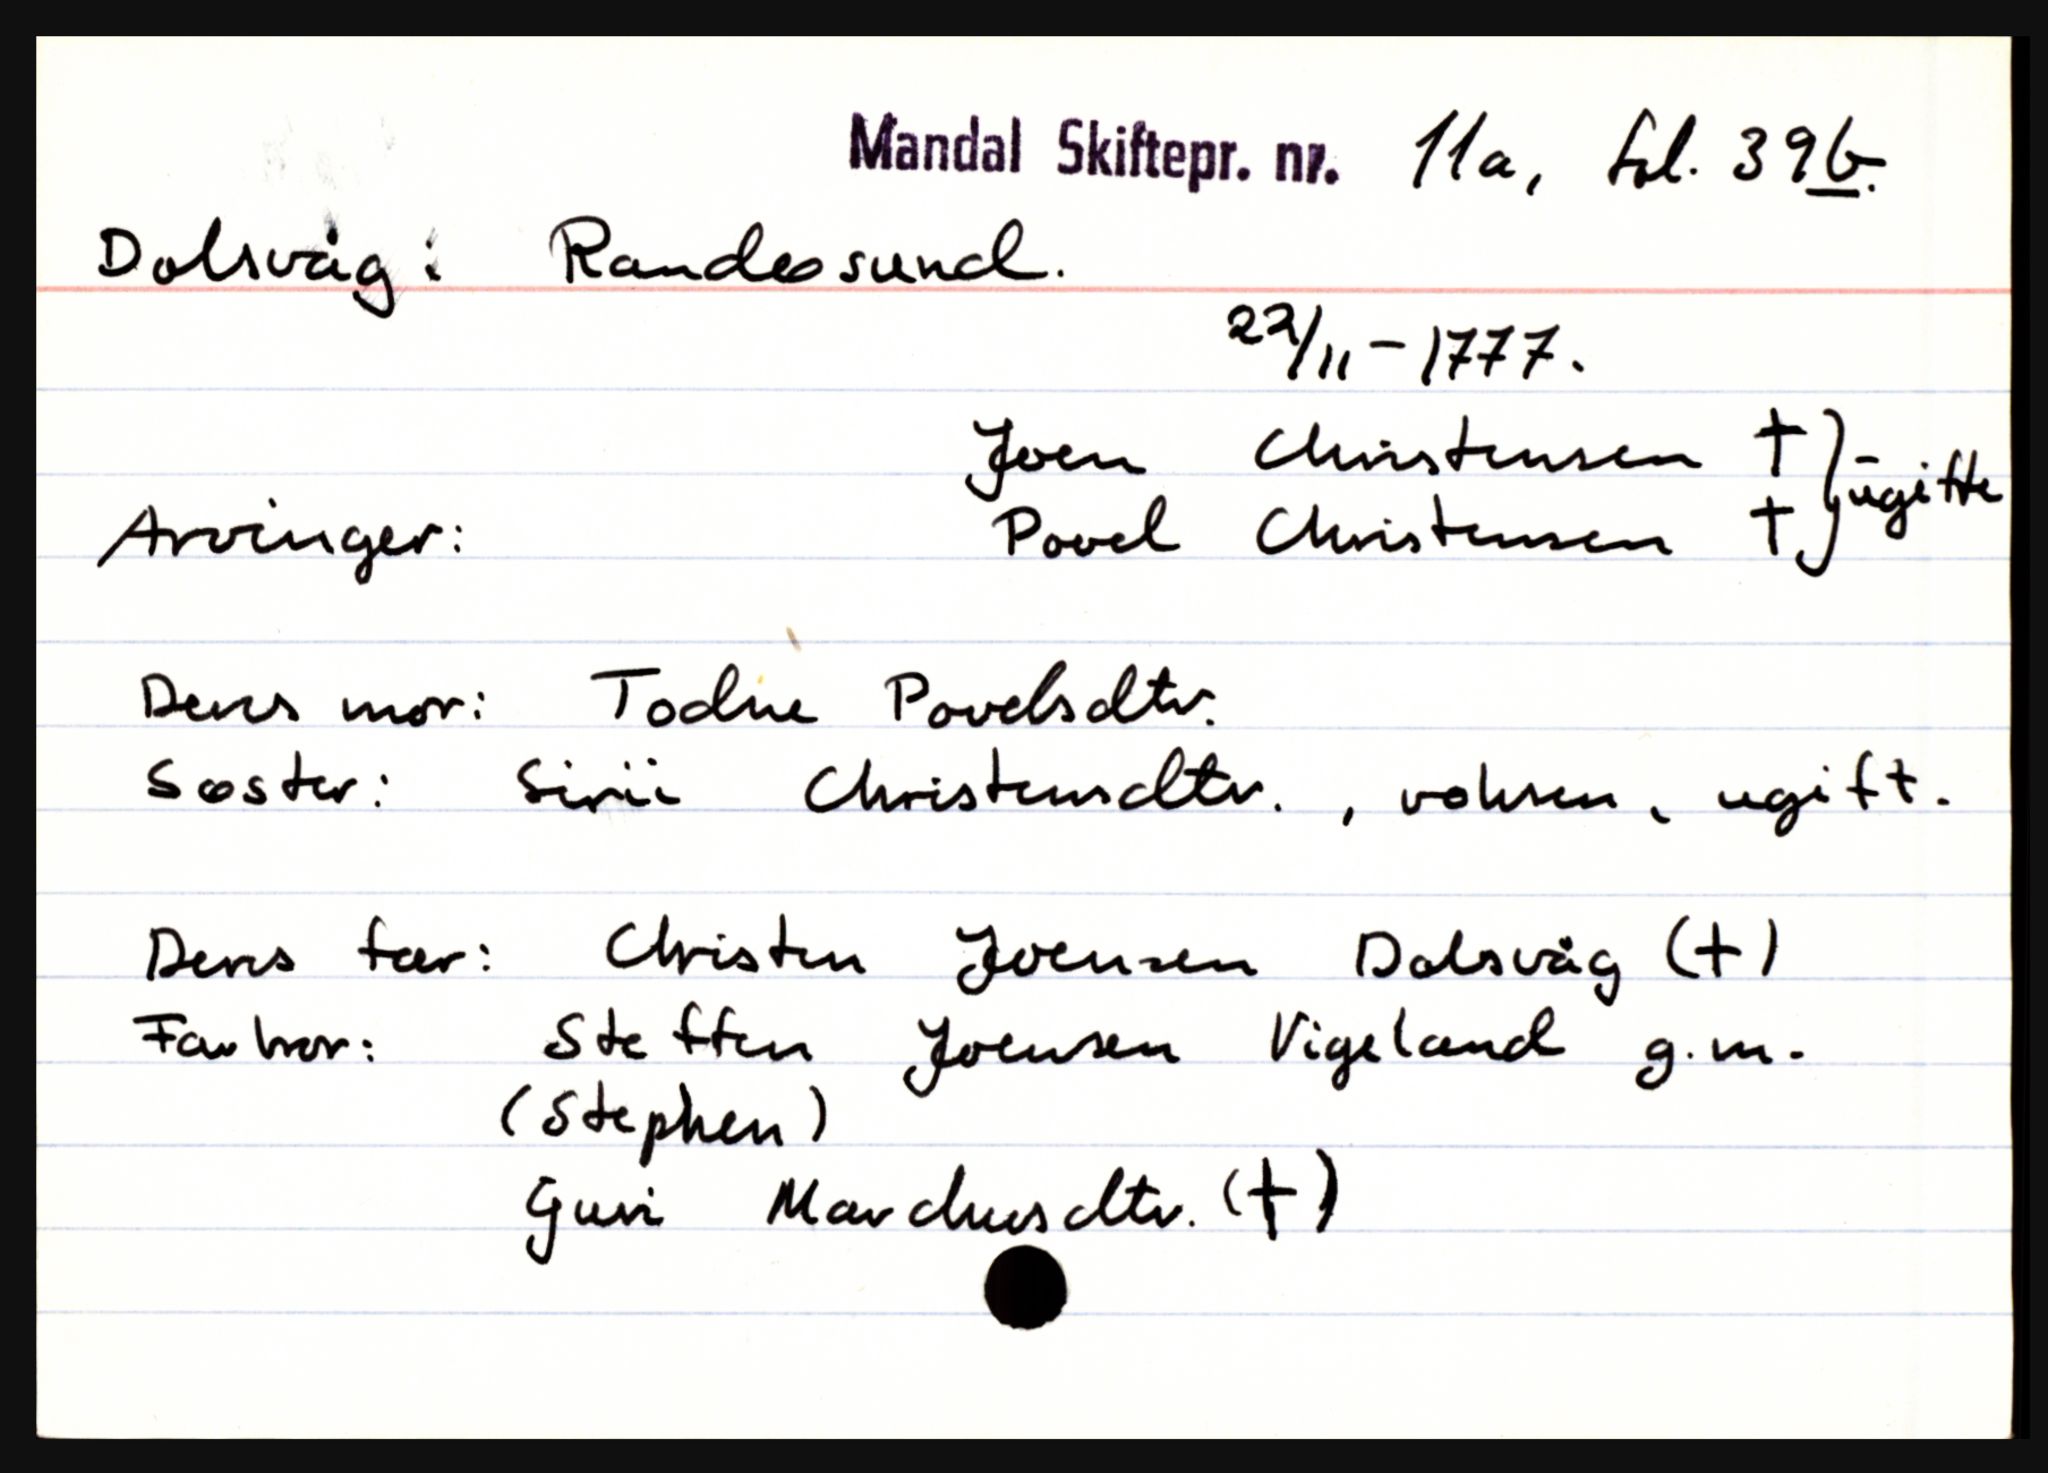 Mandal Skiftepr. nr. 11a, fol. 39b.
Dolsvåg: Randøsund.
22/11 - 1777.
Joen Christensen † } ugifte
Povel Christensen †
Arvinger:
Deres mor: Todne Povelsdtr.
Søster: Sirii Christensdtr., voksen, ugift.
Deres far: Christen Joensen Dolsvåg (†)
Farbror: Steffen Joensen Vigeland g.m.
(Stephen)
Guri Marchusdtr. (†)